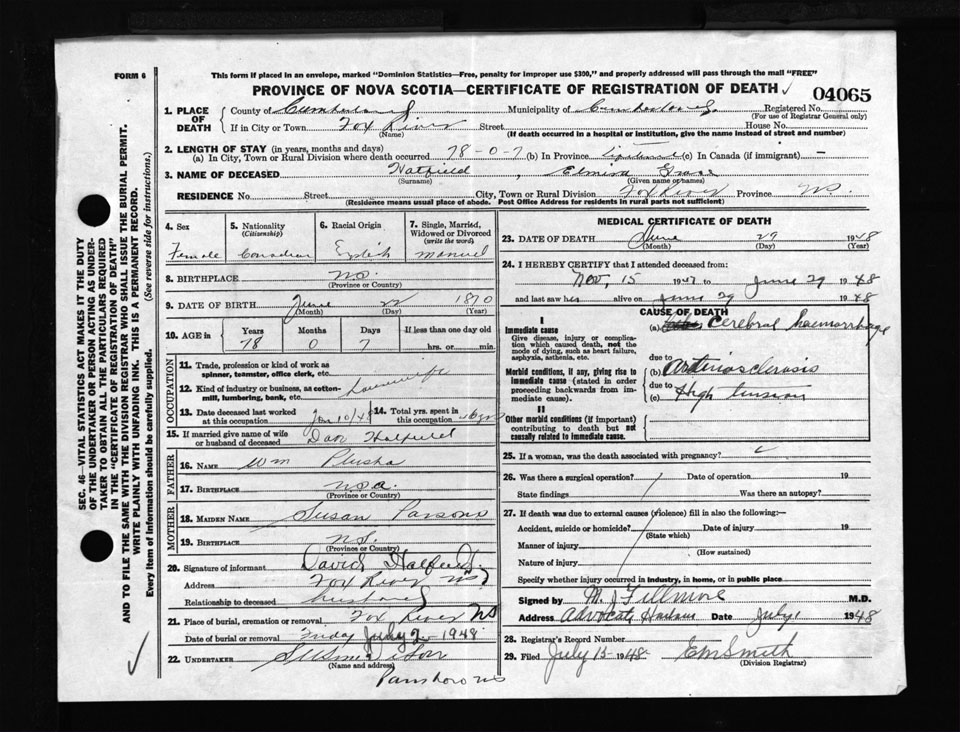 FORM 6
This form if placed in an envelope, marked "Dominion Statistics—Free, penalty for improper use $300," and properly addressed will pass through the mail "FREE"
PROVINCE OF NOVA SCOTIA—CERTIFICATE OF REGISTRATION OF DEATH
04065
1. PLACE OF DEATH
County of Cumberland Municipality of Cumberland Registered No.
(For use of Registrar General only)
If in City or Town Fox River Street House No.
(Name) (If death occurred in a hospital or institution, give the name instead of street and number)
2. LENGTH OF STAY (in years, months and days)
(a) In City, Town or Rural Division where death occurred 78-0-7 (b) In Province lifetime (c) In Canada (if immigrant) —
3. NAME OF DECEASED Hatfield, Elmira Grace
(Surname) (Given name or names)
RESIDENCE No. Street City, Town or Rural Division Fox River Province N.S.
(Residence means usual place of abode. Post Office Address for residents in rural parts not sufficient)
4. Sex
Female
5. Nationality
(Citizenship)
Canadian
6. Racial Origin
English
7. Single, Married, Widowed or Divorced
(write the word)
married
8. BIRTHPLACE N.S.
(Province or Country)
9. DATE OF BIRTH June 22 1870
(Month) (Day) (Year)
10. AGE in
Years Months Days If less than one day old
78 0 7 hrs. or min.
OCCUPATION
11. Trade, profession or kind of work as spinner, teamster, office clerk, etc.
12. Kind of industry or business, as cotton-mill, lumbering, bank, etc.
Housewife
13. Date deceased last worked at this occupation Jan 10/48
14. Total yrs. spent in this occupation yrs
15. If married give name of wife or husband of deceased Dav Hatfield
FATHER
16. NAME Wm
17. BIRTHPLACE
(Province or Country)
MOTHER
18. MAIDEN NAME Susan Parsons
19. BIRTHPLACE N.S.
(Province or Country)
20. Signature of informant David Hatfield
Address Fox River NS
Relationship to deceased husband
21. Place of burial, cremation or removal Fox River NS
Date of burial or removal Friday July 2 1948
22. UNDERTAKER
(Name and address)
Parrsboro NS
MEDICAL CERTIFICATE OF DEATH
23. DATE OF DEATH June 29 1948
(Month) (Day) (Year)
24. I HEREBY CERTIFY that I attended deceased from:
Nov, 15 1947 to June 29 1948
and last saw her alive on June 29 1948
CAUSE OF DEATH
I
Immediate cause
Give disease, injury or complication which caused death, not the mode of dying, such as heart failure, asphyxia, asthenia, etc.
(a) Cerebral haemorrhage
due to
Morbid conditions, if any, giving rise to immediate cause (stated in order proceeding backwards from immediate cause).
(b) Arteriosclerosis
due to
(c) High tension
II
Other morbid conditions (if important) contributing to death but not causally related to immediate cause.
25. If a woman, was the death associated with pregnancy?
26. Was there a surgical operation? Date of operation 19
State findings Was there an autopsy?
27. If death was due to external causes (violence) fill in also the following:—
Accident, suicide or homicide? Date of injury 19
(State which)
Manner of injury
(How sustained)
Nature of injury
Specify whether injury occurred in industry, in home, or in public place
Signed by M. J. Fillmore M.D.
Address Advocate Harbour Date July 1 1948
28. Registrar's Record Number
29. Filed July 15 1948 EM Smith
(Division Registrar)
SEC. 46—VITAL STATISTICS ACT MAKES IT THE DUTY
OF THE UNDERTAKER OR PERSON ACTING AS UNDER-
TAKER TO OBTAIN ALL THE PARTICULARS REQUIRED
IN THE "CERTIFICATE OF REGISTRATION OF DEATH"
AND TO FILE THE SAME WITH THE DIVISION REGISTRAR WHO SHALL ISSUE THE BURIAL PERMIT.
WRITE PLAINLY WITH UNFADING INK. THIS IS A PERMANENT RECORD.
Every item of information should be carefully supplied. (See reverse side for instructions.)